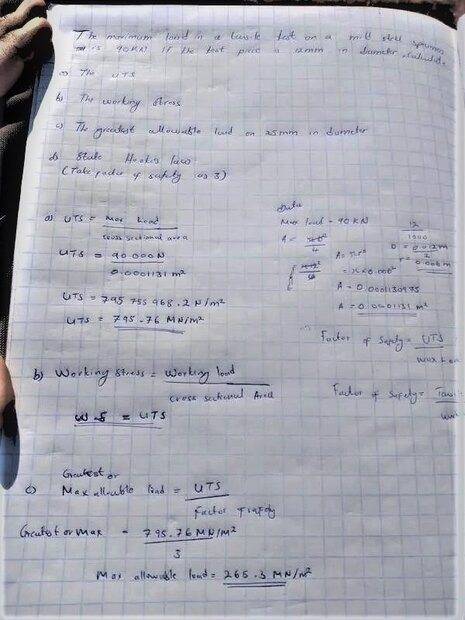 The maximum load in a tensile test on a mild steel specimen
is 90KN if the test piece is 12mm in diameter, calculate
a) The UTS
b) The working stress
c) The greatest allowable load on 25mm in diameter
d) State Hooke's law
(Take factor of safety as 3)
a) UTS = Max Load
cross sectional area
UTS = 90.000N
0.0001131 m²
UTS = 795 755 968.2 N/m²
UTS = 795.76 MN/m²
Data
Max load = 90KN
A =
4
12
1000
D = 0.012m
2
r = 0.006m
A = πr²
= π×0.006²
A = 0.0001130975
A = 0.0001131 m²
Factor of Safety = UTS
Factor of Safety =
b) Working Stress = Working load
Cross sectional Area
W.S = UTS
Greatest or
c) Max allowable load = UTS
Factor of safety
Greatest or Max = 795.76 MN/m²
3
Max allowable load = 265.3 MN/m²